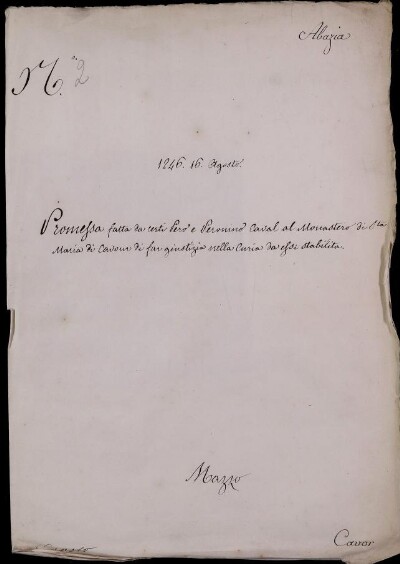 Abazia
N.° 2
1246. 16. Agosto.
Promessa fatta da certi Però e Peronino Caval al Monastero di Sta
Maria di Cavour di far giustizia nella Curia da essi stabilita.
Mazzo
Cavor